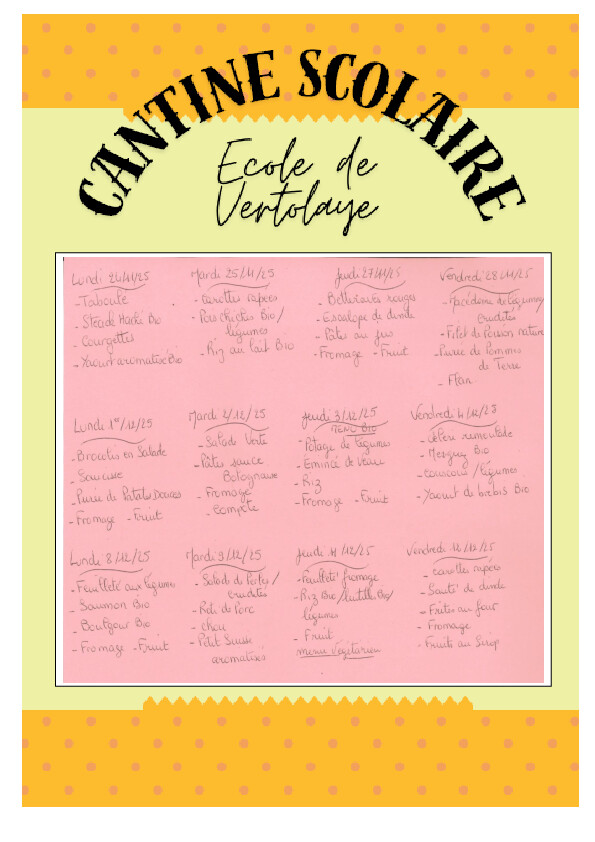 CANTINE SCOLAIRE
Ecole de
Vertolaye
Lundi 24/11/25
- Taboulé
- Steack Haché Bio
- Courgettes
- Yaourt aromatisé Bio
Mardi 25/11/25
- carottes rapées
- Pois chiches Bio/
légumes
- Riz au lait Bio
Jeudi 27/11/25
- Betteraves rouges
- Escalope de dinde
- Pâtes au jus
- Fromage - Fruit
Vendredi 28/11/25
- Macédoine de légumes/
crudités
- Filet de Poisson nature
- Purée de Pommes
de Terre
- Flan
Lundi 1er/12/25
- Brocolis en Salade
- Saucisse
- Purée de Patates Douces
- Fromage - Fruit
Mardi 2/12/25
- Salade Verte
- Pâtes sauce
Bolognaise
- Fromage
- Compote
Jeudi 3/12/25
Menu Bio
- Potage de légumes
- Emincé de Veau
- Riz
- Fromage - Fruit
Vendredi 4/12/25
- céleri remoulade
- Merguez Bio
- couscous / légumes
- Yaourt de brebis Bio
Lundi 8/12/25
- Feuilleté aux légumes
- Saumon Bio
- Boulgour Bio
- Fromage - Fruit
Mardi 9/12/25
- Salade de Pâtes/
crudités
- Roti de Porc
- chou
- Petit Suisse
aromatisés
Jeudi 11/12/25
- Feuilleté fromage
- Riz Bio/lentille Bio/
légumes
- Fruit
menu Végétarien
Vendredi 12/12/25
- carottes rapées
- Sauté de dinde
- Frites au four
- Fromage
- Fruits au Sirop